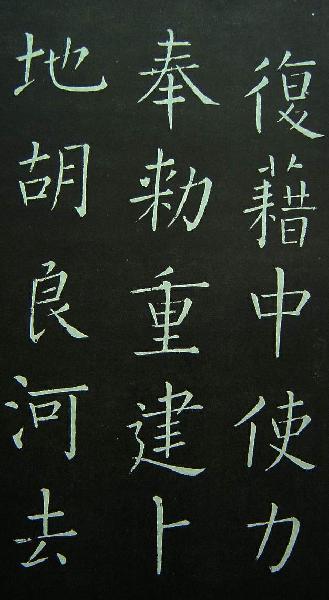 復藉中使力
奉勑重建卜
地胡良河去